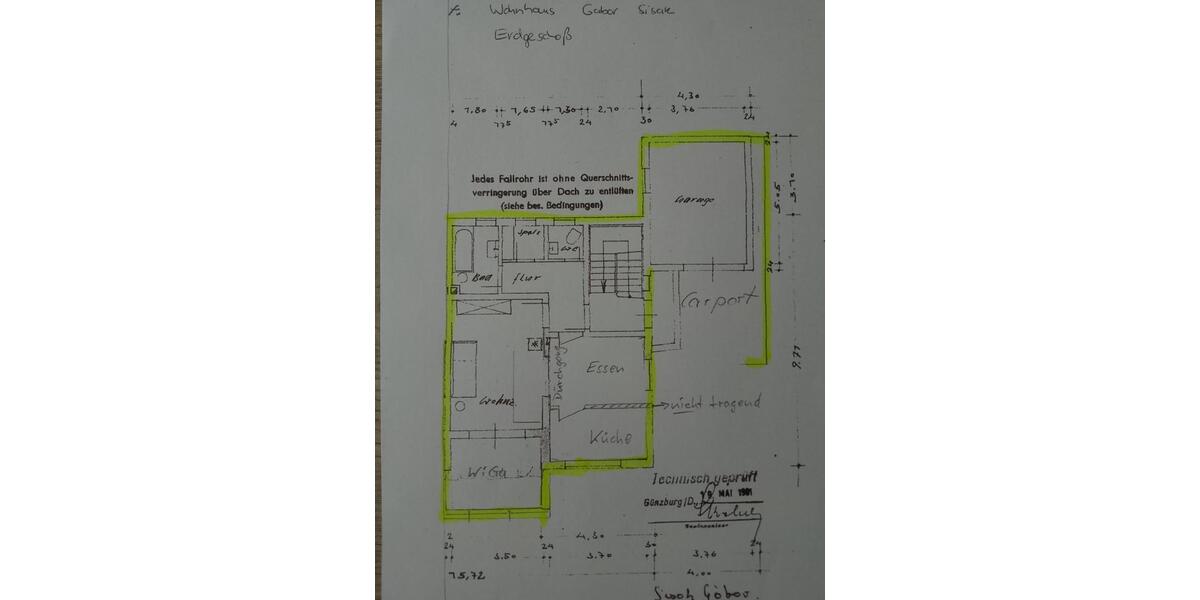 Wohnhaus Gabor Sisak
Erdgeschoß
4,30
1.80 1,65 1,30 2,10 3,76
4 11⁵ 11⁵ 24 30 24
24
Jedes Fallrohr ist ohne Querschnitts-
verringerung über Dach zu entlüften
(siehe bes. Bedingungen)
Garage
5.05
3.70
Speis
WC
Bad
Flur
24
Carport
Essen
Durchgang
9.71
Wohne
nicht tragend
Küche
WiGa
Technisch geprüft
Günzburg/D., 19 MAI 1981
2 4.30
24 24 30 24
3.50 3.70 3.76
15,72 4,00
Sisak Gábor.